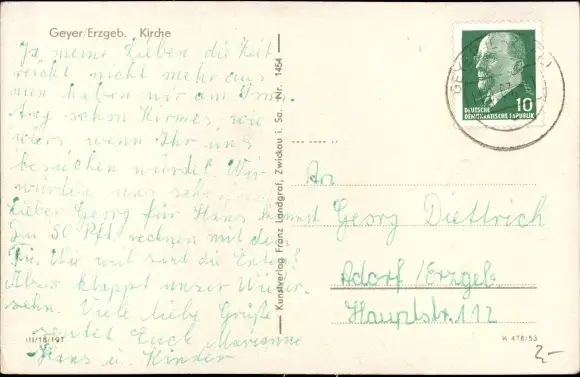 Geyer/Erzgeb. Kirche
Ja meine Lieben die Zeit
reicht nicht mehr aus
nun haben wir am
schon Kirmes, wie
wärs, wenn Ihr uns
besuchen würdet. Wir
würden uns
Lieber Georg für Hans kannst
Du 50 Pft. rechnen mit der
wie sind die
Aber klappt unser Wieder-
sehn. Viele liebe Grüße
sendet Euch Marianne
Hans u. Kinder
III/18/197
Kunstverlag Franz Landgraf, Zwickau i. Sa. Nr. 1464
DEUTSCHE
DEMOKRATISCHE REPUBLIK
10
GEYER
An
Georg Diettrich
Adorf/Erzgeb.
Hauptstr. 112
K 476/53
2,-